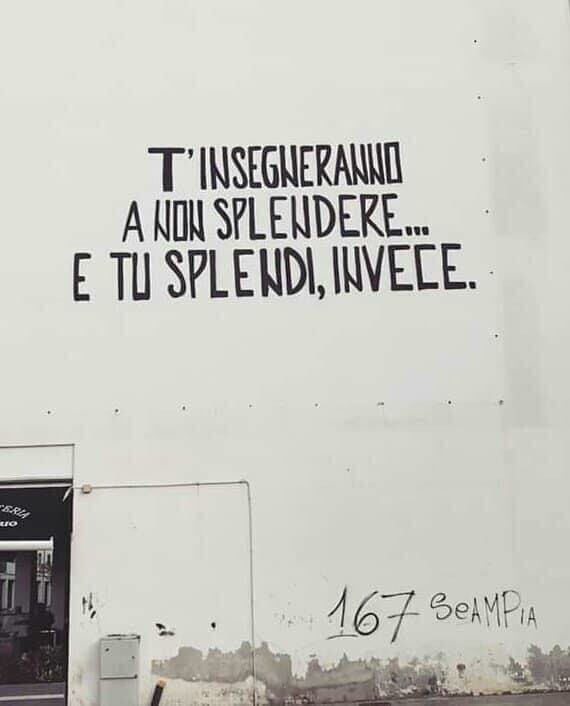 T'INSEGNERANNO
A NON SPLENDERE...
E TU SPLENDI, INVECE.
167 SCAMPIA